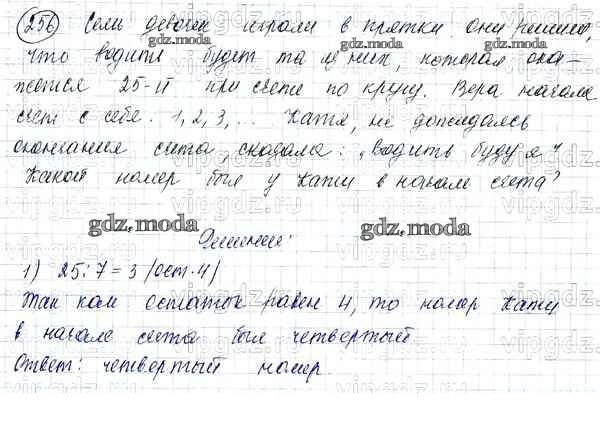 256 Семь девочек играли в прятки. Они решили,
что водить будет та из них, которая ока-
жется 25-й при счете по кругу. Вера начала
счет с себя. 1, 2, 3, ... Катя, не дождавшись
окончания счета сказала: "Водить буду я".
Какой номер был у Кати в начале счета?
gdz.moda
Решение:
1) 25:7=3 (ост.4)
Так как остаток равен 4, то номер Кати
в начале счета был четвертый
Ответ: четвертый номер.